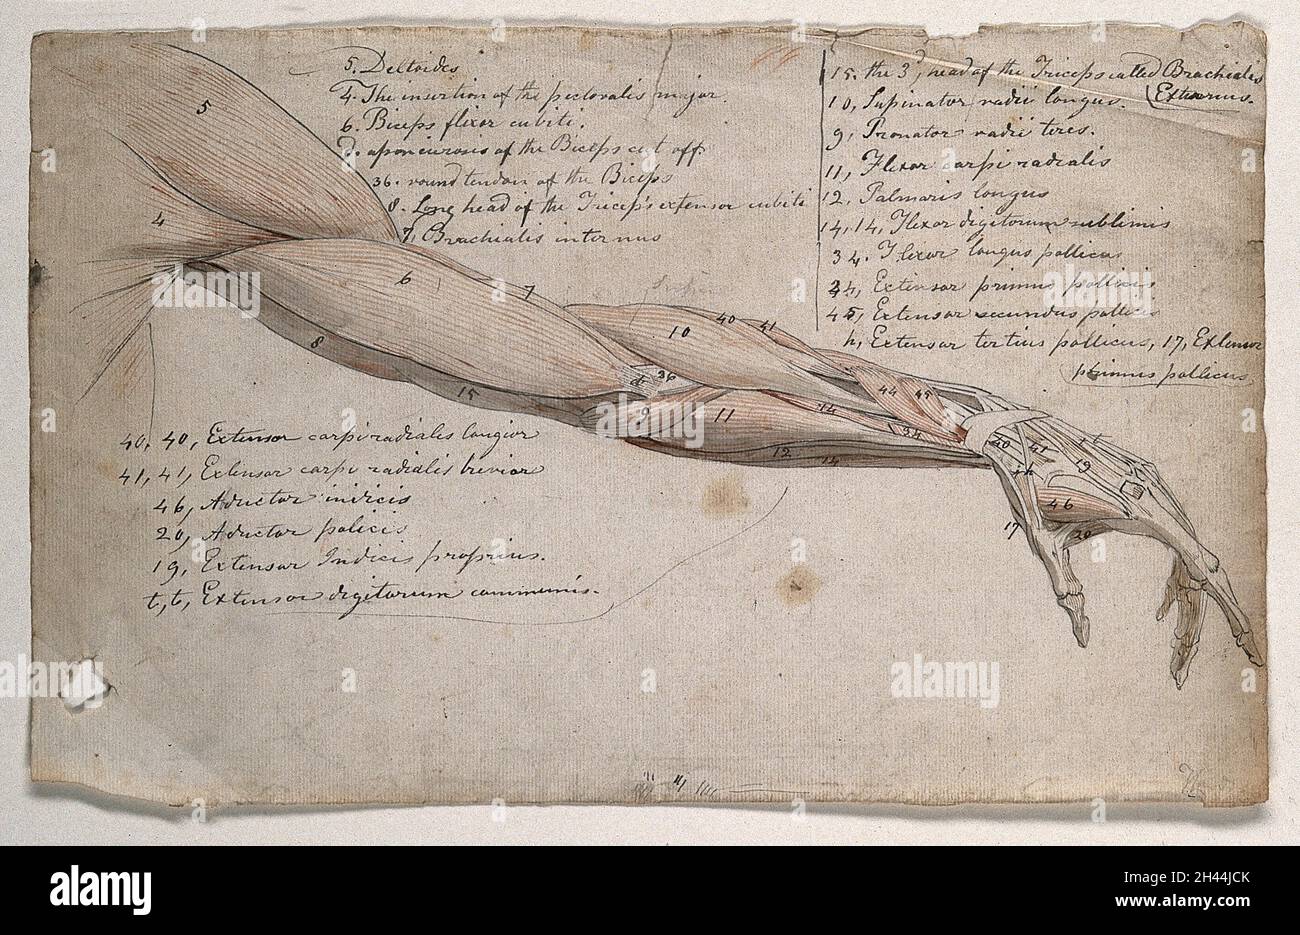 5. Deltoides
4. The insertion of the pectoralis major.
6. Biceps flexor cubiti.
d. aponeurosis of the Biceps cut off.
36. round tendon of the Biceps
8. Long head of the Tricep's extensor cubiti
7, Brachialis internus
15. the 3d, head of the Triceps called Brachialis
Externus.
10, Supinator radii longus.
9, Pronator radii teres.
11, Flexor carpi radialis
12, Palmaris longus
14, 14, Flexor digitorum sublimis
34. Flexor longus pollicus
44, Extensor primus pollicis
45, Extensor secundus pollicis
h, Extensor tertius pollicus, 17, Extensor
primus pollicus
40, 40, Extensor carpi radialis longior
41, 41, Extensor carpi radialis brevior
46, Aductor indicis
20, Aductor policis
19, Extensor Indicis proprius.
t, t, Extensor digitorum communis.
5
4
6
7
8
15
10
40
41
d
36
9
11
14
12
14
34
44
45
40
41
t t
19
46
17
20
alamy
Image ID: 2H44JCK
www.alamy.com